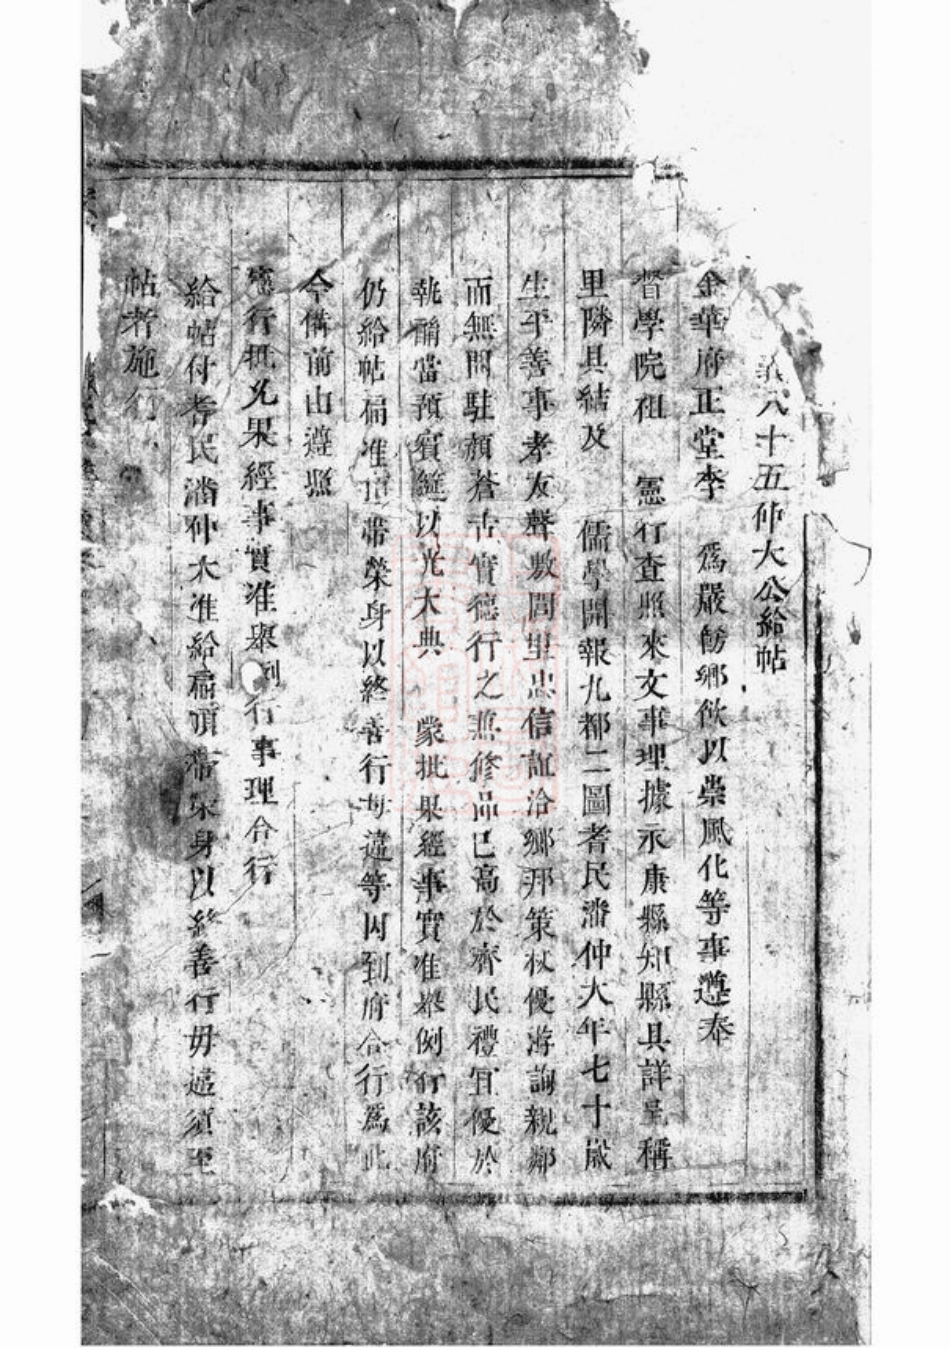 義八十五仲大公給帖
金華府正堂李 爲嚴飭鄉飲以崇風化等事遵奉
督學院祖 憲行查照來文事理據永康縣知縣具詳呈稱
里隣具結及 儒學開報九都二圖耆民潘仲大年七十歲
生平善事孝友聲敷閭里忠信誼洽鄉邦策杖優游詢親鄰
而無間駐顏蒼古實德行之兼修品已高於齊民禮宜優於
執酳當預賓筵以光大典 蒙批果經事實准舉例行該府
仍給帖扁准頂帶榮身以終善行毋違等因到府合行爲此
今備前由遵照
憲行批允果經事實准舉例行事理合行
給帖付耆民潘仲大准給扁頂帶榮身以終善行毋違須至
帖者施行